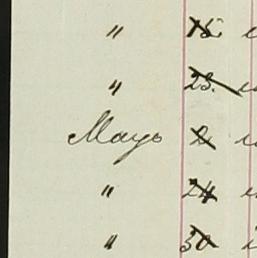 " 15.
" 23.
Mayo 2
" 24
" 30